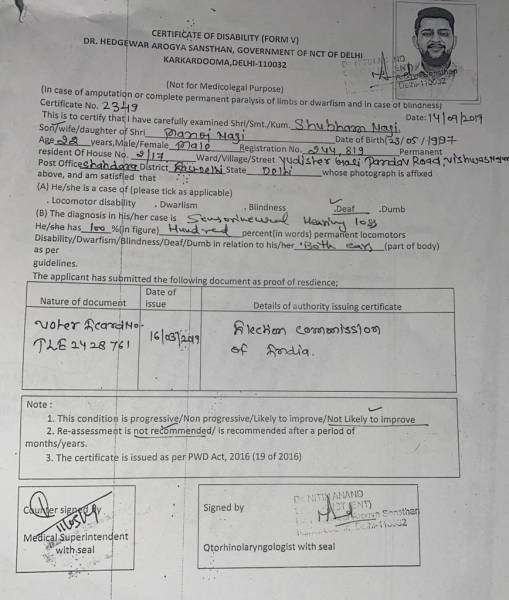 CERTIFICATE OF DISABILITY (FORM V)
DR. HEDGEWAR AROGYA SANSTHAN, GOVERNMENT OF NCT OF DELHI
KARKARDOOMA, DELHI-110032
(Not for Medicolegal Purpose)
(In case of amputation or complete permanent paralysis of limbs or dwarfism and in case of blindness)
Certificate No. 2349 Date: 14/09/2019
This is to certify that I have carefully examined Shri/Smt./Kum. Shubham Nagi
Son/wife/daughter of Shri Manoj Nagi Date of Birth 23/05/1997
Age 22 years, Male/Female male Registration No. 244,819 Permanent
resident Of House No. 2/17 Ward/Village/Street Yudister Gali Pandav Road, Vishwas Nagar
Post Office Shahdara District State Delhi whose photograph is affixed
above, and am satisfied that
(A) He/she is a case of (please tick as applicable)
. Locomotor disability . Dwarlism . Blindness .Deaf .Dumb
(B) The diagnosis in his/her case is Sensorineural Hearing loss
He/she has 100 %(in figure) Hundred percent(in words) permanent locomotors
Disability/Dwarfism/Blindness/Deaf/Dumb in relation to his/her Both ears (part of body)
as per
guidelines.
The applicant has submitted the following document as proof of resdience;
Nature of document Date of issue Details of authority issuing certificate
Voter Icard No. TLE2428761 16/03/2019 Election commission of India.
Note :
1. This condition is progressive/Non progressive/Likely to improve/Not Likely to improve
2. Re-assessment is not recommended/ is recommended after a period of
months/years.
3. The certificate is issued as per PWD Act, 2016 (19 of 2016)
Counter signed By
Medical Superintendent
with seal
Signed by
Dr NITIN ANAND
(ENT)
Sansthan
Delhi-110032
Qtorhinolaryngologist with seal